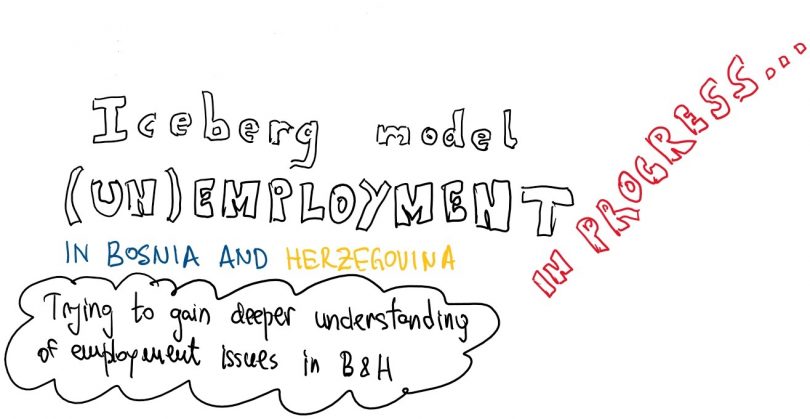 Iceberg model
(UN)EMPLOYMENT
IN BOSNIA AND HERZEGOVINA
Trying to gain deeper understanding
of employment issues in B&H
IN PROGRESS...